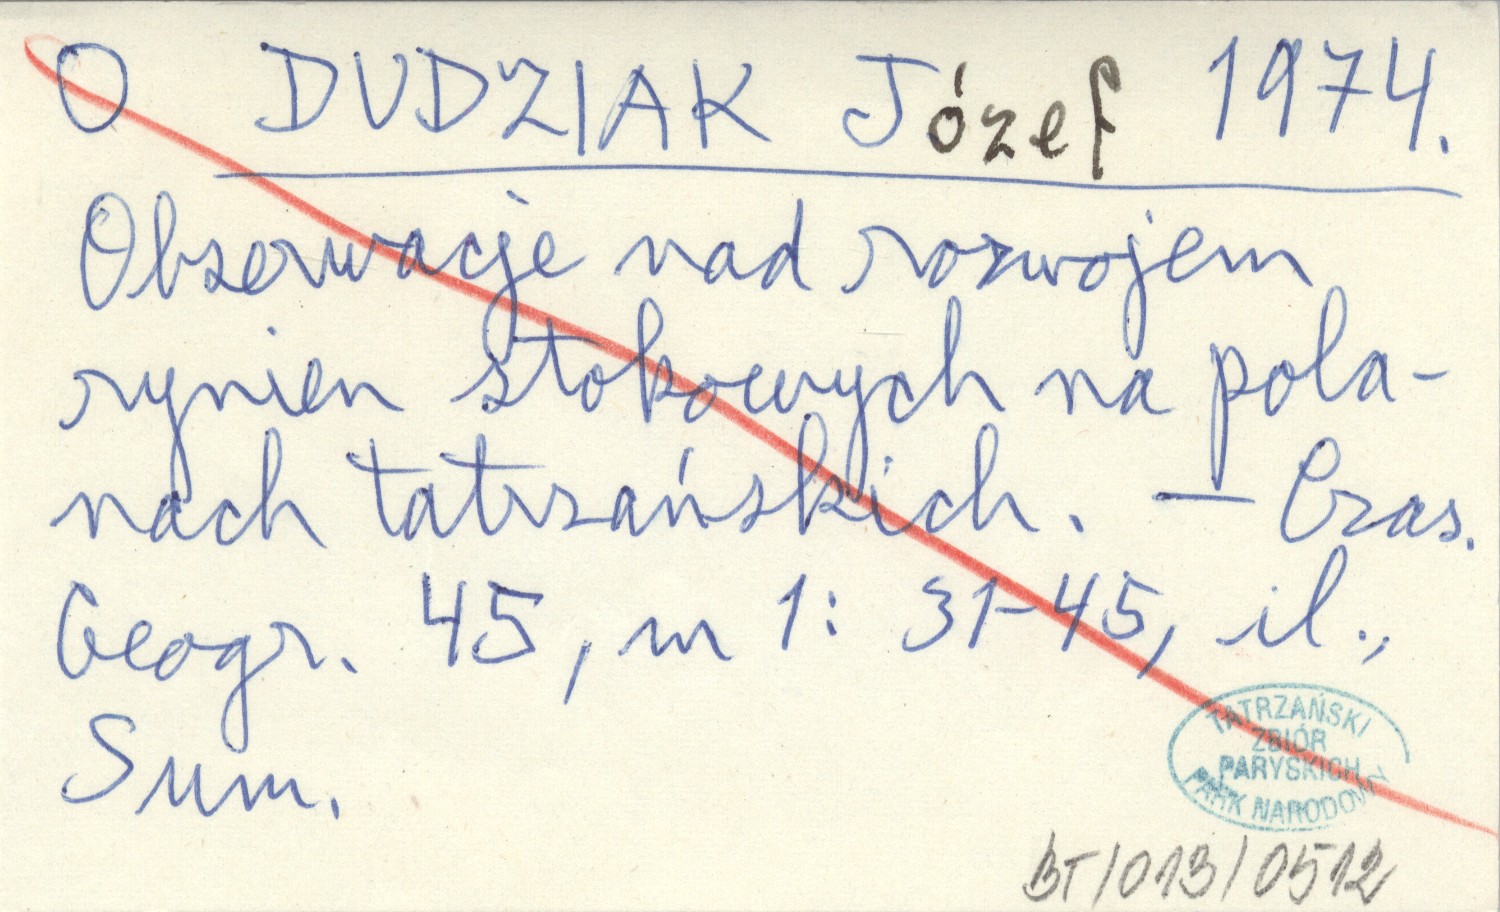 O DUDZIAK Józef 1974.
Obserwacje nad rozwojem
rynien stokowych na pola-
nach tatrzańskich. — Czas.
Geogr. 45, nr 1: 31-45, il.,
Sum.
TATRZAŃSKI
ZBIÓR
PARYSKICH
PARK NARODOWY
BT/013/0512